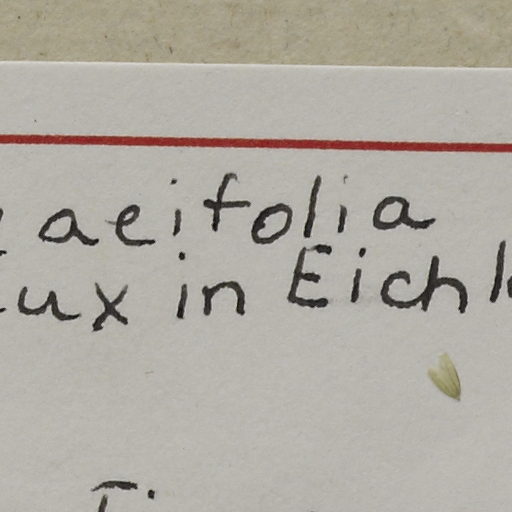 aeifolia
ux in Eichl